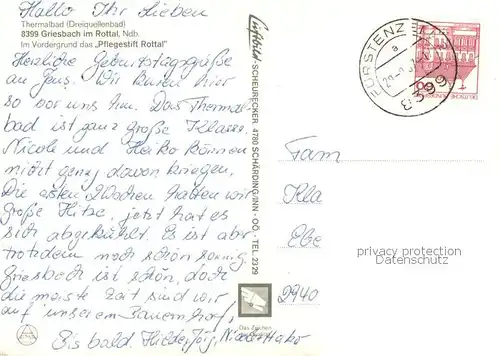 Hallo Ihr Lieben
Thermalbad (Dreiquellenbad)
8399 Griesbach im Rottal, Ndb.
Im Vordergrund das „Pflegestift Rottal"
Herzliche Geburtstagsgrüße
an Jens. Wir kuren hier
so vor uns hin. Das Thermal-
bad ist ganz große Klasse.
Nicole und Heiko können
nicht genug davon kriegen.
Die ersten 2 Wochen hatten wir
große Hitze, jetzt hat es
sich abgekühlt. Es ist aber
trotzdem noch schön sonnig.
Griesbach ist schön, doch
die meiste Zeit sind wir
auf unserem Bauernhof.
Bis bald. Hilde, Jörg, Nicole + Heiko
Luftbild-SCHEURECKER, 4780 SCHÄRDING/INN - OÖ. - TEL. 2329
Das Zeichen
FÜRSTENZELL
a
8399
DEUTSCHE BUNDESPOST
60
Fam
Kla
Ebe
2940
privacy protection
Datenschutz